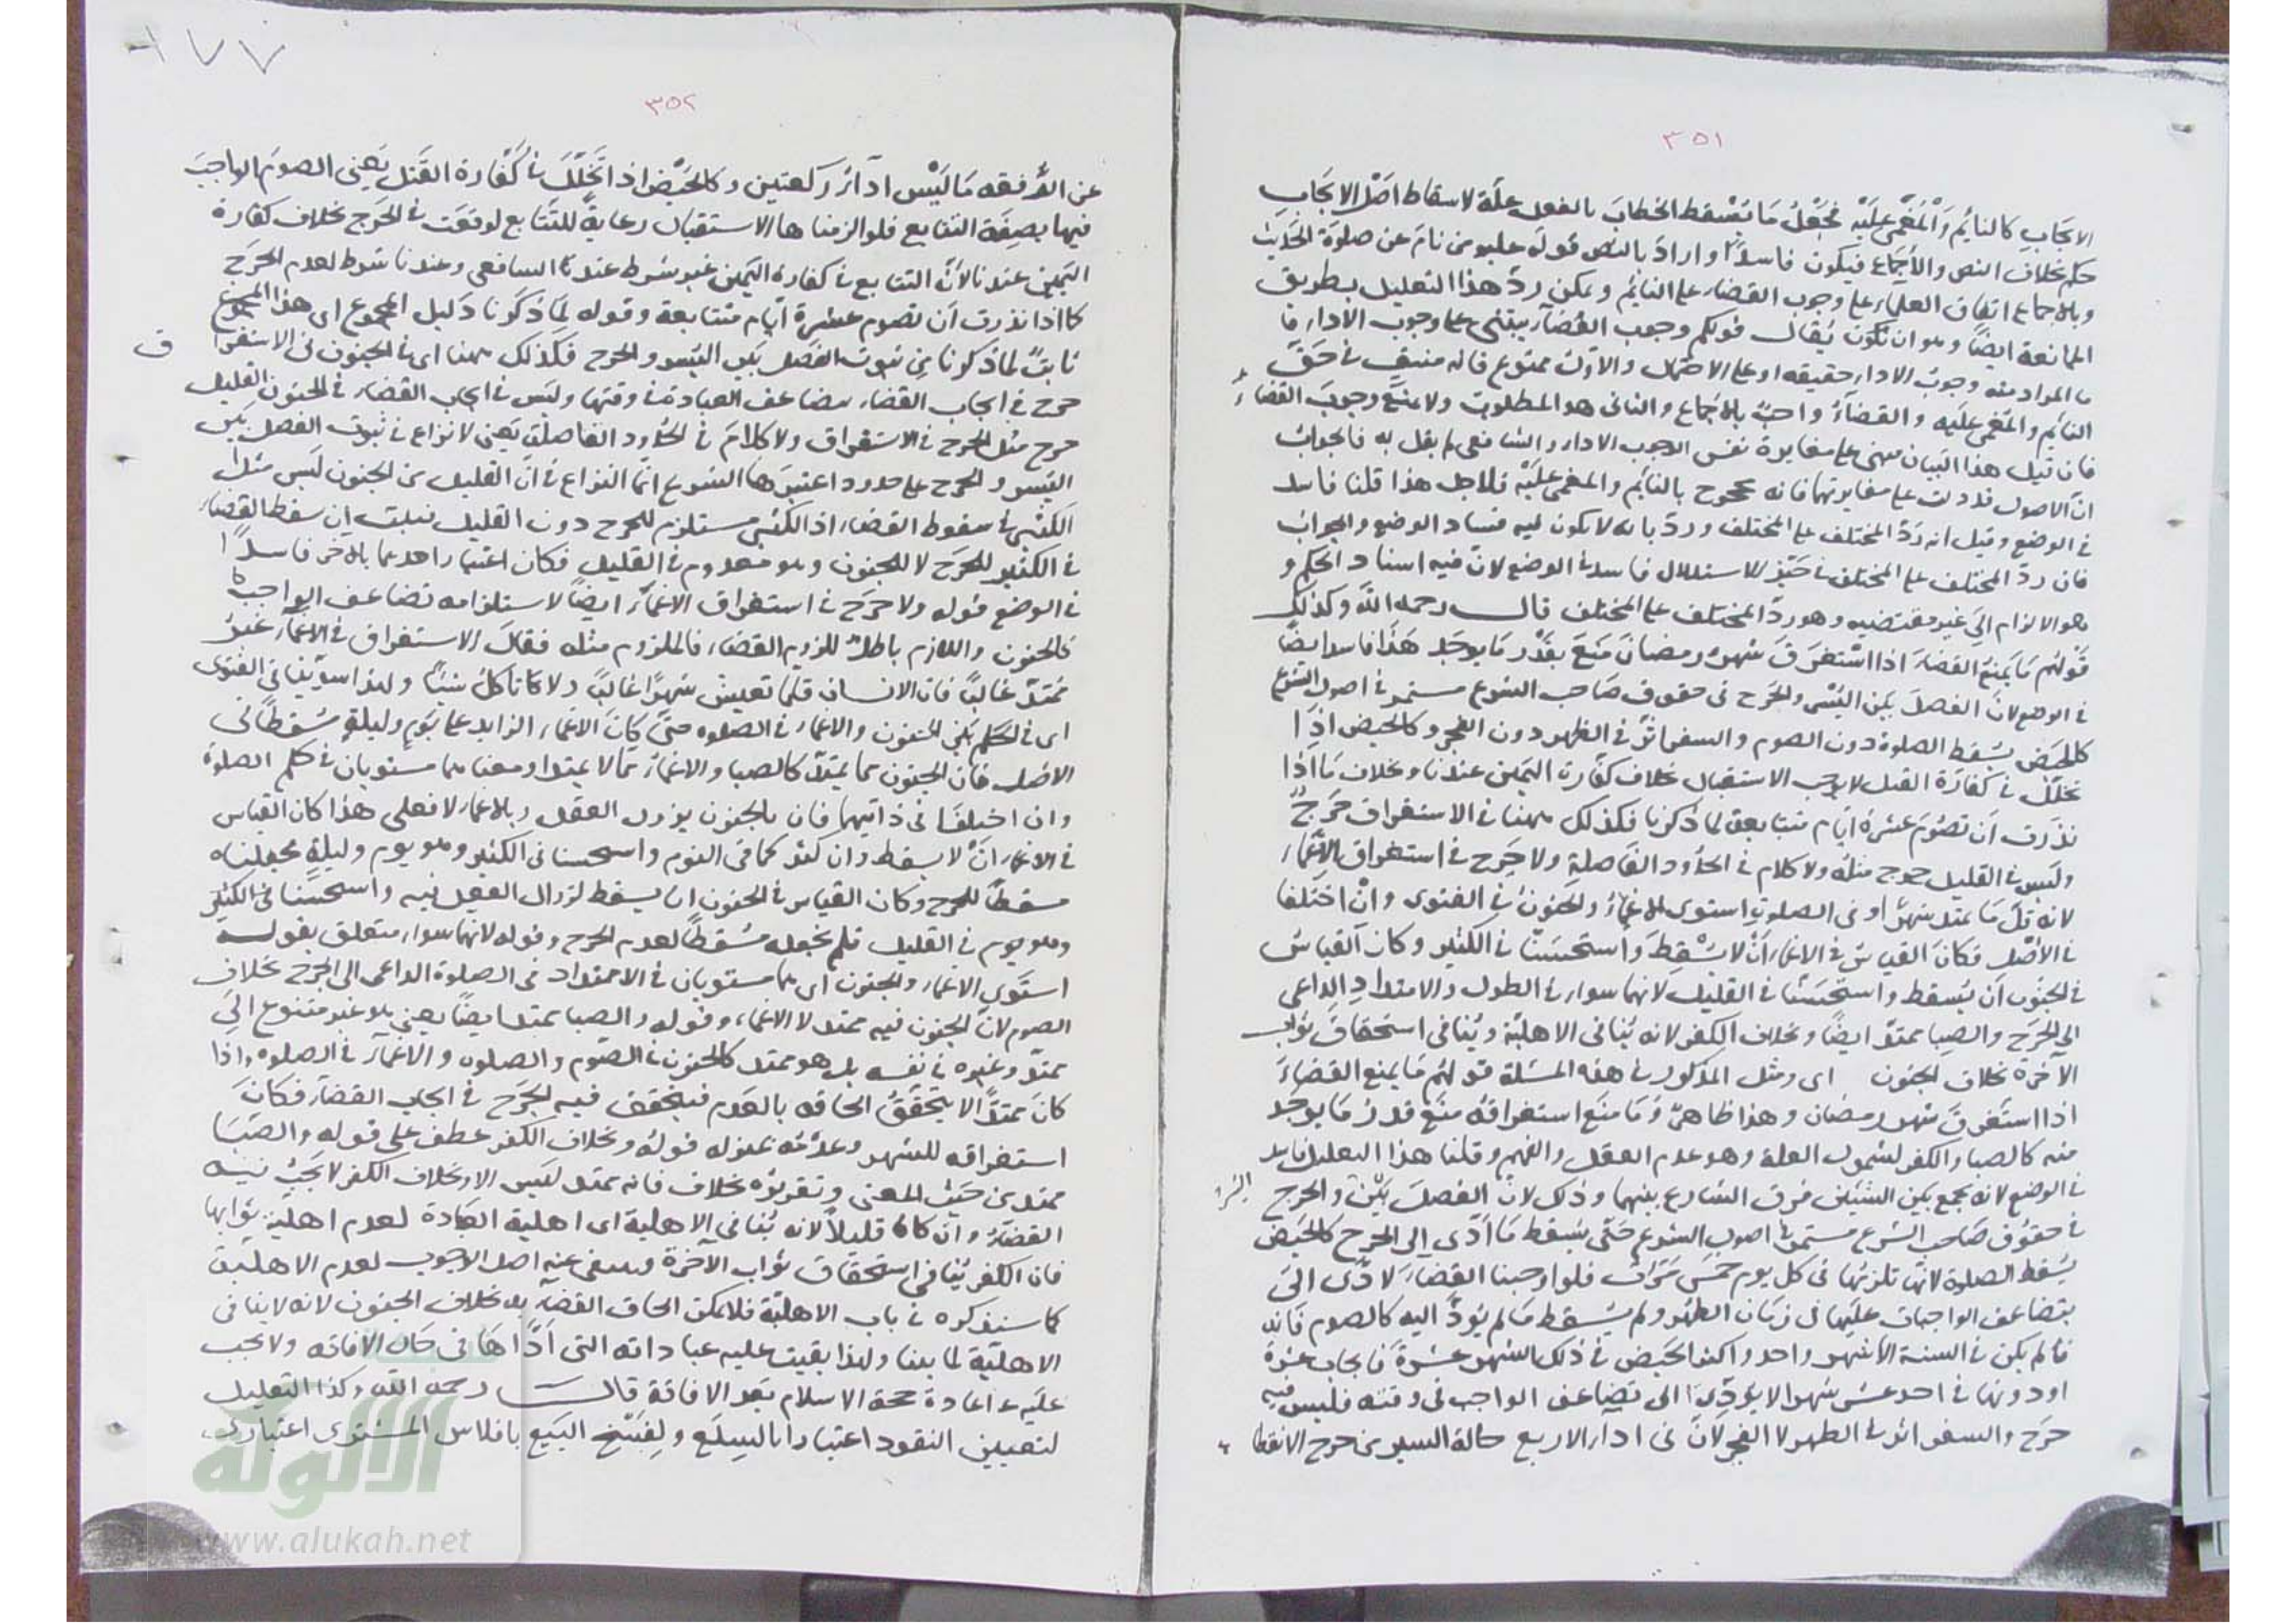 ٣٥١
الايجاب كالنائم والمغمى عليه فجعل ما يسقط الخطاب بالفعل علة لاسقاط اصل الايجاب
حكم بخلاف النص والاجماع فيكون فاسدا واراد بالنص قوله عليه من نام عن صلوة الحديث
وبالاجماع اتفاق العلماء على وجوب القضاء على النائم ويمكن ردّ هذا التعليل بطريق
الممانعة ايضا وهو ان نكون يقال قولكم وجوب القضاء يبتنى على وجوب الاداء ما
ما المراد منه وجوب الاداء حقيقه او على الاحتمال والاول ممنوع فانه منتف في حق
النائم والمغمى عليه والقضاء واجب بالاجماع والثاني هو المطلوب ولا يمنع وجوب القضاء
فان قيل هذا البيان مبني على مغايرة نفس الوجوب الاداء والشافعي لم يقل به فالجواب
انّ الاصول قد دلت على مغايرتهما فانه محجوج بالنائم والمغمى عليه فلاجل هذا قلنا فاسد
في الوضع وقيل انه ردّ المختلف على المختلف وردّ بانه لا يكون فيه فساد الوضع والجواب
فان ردّ المختلف على المختلف في حيّز الاستدلال فاسد في الوضع لانّ فيه اسناد الحكم و
هو الالزام الى غير مقتضيه وهو ردّ المختلف على المختلف قال رحمه الله وكذلك
قولهم ما يمنع القضاء اذا استغرق شهر رمضان منع بقدر ما يوجد هذا فاسد ايضا
في الوضع لانّ الفصل بين اليسر والحرج في حقوق صاحب الشرع مستمر في اصول الشرع
كالحيض يسقط الصلوة دون الصوم والسفر اثّر في الظهر دون الفجر وكالحيض اذا
تخلّل في كفارة القتل لا يوجب الاستقبال بخلاف كفّارة اليمين عندنا وبخلاف ما اذا
نذرت أن تصوم عشرة ايّام متتابعة لما ذكرنا فكذلك ههنا في الاستغراق حرجٌ
وليس في القليل حرج مثله ولا كلام في الحدود الفاصلة ولا حرج في استغراق الاغماء
لانه قلّ ما يمتد شهرا وفي الصلوات استوى الاغماء والجنون في الفتوى وان اختلفا
في الاصل فكان القياس في الاغماء أن لا يسقط واستحسنّا في الكثير وكان القياس
في الجنون ان يسقط واستحسنّا في القليل لانهما سواء في الطول والامتداد الداعي
الى الحرج والصبا ممتدّ ايضا وبخلاف الكفر لانه ينافي الاهليّة وينافي استحقاق ثواب
الآخرة بخلاف الجنون اى ومثل المذكور في هذه المسئلة قولهم ما يمنع القضاء
اذا استغرق شهر رمضان وهذا ظاهر وما منع استغراقه منع قدر ما يوجد
منه كالصبا والكفر لشمول العلة وهو عدم العقل والفهم وقلنا هذا التعليل فاسد
في الوضع لانه يجمع بين الشيئين فرق الشارع بينهما وذلك لانّ الفصل بين والحرج اليسر
في حقوق صاحب الشرع مستمر في اصول الشرع حتى يسقط ما ادّى الى الحرج كالحيض
يسقط الصلوة لانها تلزمها في كل يوم خمس مرّات فلو اوجبنا القضاء لادّى الى
تضاعف الواجبات عليها في زمان الطهر ولم يسقط ما لم يؤدّ اليه كالصوم فانه
فالم يكن في السنة الا شهر واحد واكثر الحيض في ذلك الشهر عشرة فايجاب عشرة
او دونها في احد عشر شهرا لا يؤدّى الى تضاعف الواجب في وقته فليس فيه
حرج والسفر اثر في الظهر لا الفجر لان في اداء الاربع حالة السير من حرج الانقطا
٣٥٢
عن الرفقه ما ليس في اداء ركعتين وكالحيض اذا تخلّل في كفّارة القتل يعني الصوم الواجب
فيها بصفة التتابع فلو الزمناها الاستقبال رعاية للتتابع لوقعت في الحرج بخلاف كفارة
اليمين عندنا لانّ التتابع في كفارة اليمين غير شرط عند الشافعي وعندنا شرط لعدم الحرج
كما اذا نذرت أن تصوم عشرة ايّام متتابعة وقوله لما ذكرنا دليل المجموع اى هذا المجموع
ثابت لما ذكرنا من ثبوت الفصل بين اليسر والحرج فكذلك ههنا اى في الجنون في الاستغرا ق
حرج في ايجاب القضاء بضاعف العبادة في وقتها وليس في ايجاب القضاء في الجنون القليل
حرج مثل الحرج في الاستغراق ولا كلام في الحدود الفاصلة يعني لا نزاع في ثبوت الفصل بين
اليسر والحرج على حدود اعتبرها الشرع انما النزاع في انّ القليل من الجنون ليس مثل
الكثير في سقوط القضاء اذ الكثير مستلزم للحرج دون القليل فيلت ان سقط القضاء
في الكثير للحرج لا للجنون وهو معدوم في القليل فكان اعتبار احدهما بالاخر فاسدا
في الوضع قوله ولا حرج في استغراق الاغماء ايضا لاستلزامه تضاعف الواجب كا
فالجنون واللازم باطل للزوم القضاء فالملزوم مثله فقال الاستغراق في الاغماء غير
ممتدّ غالبا فان الانسان قلما تعيش شهرا غالبا ولا كا تاكل شيئا ولهذا استويا في الفتوى
اى في الحكم بين الجنون والاغماء في الصلوه حتى كان الاغماء الزايد على يوم وليلة مسقطا في
الاصل فان الجنون مما يمتدّ كالصبا والاغماء مما لا يمتد ومعناهما مستويان في حكم الصلوة
وان اختلفا في ذاتيهما فان بالجنون يزول العقل وبالاغماء لا فعلى هذا كان القياس
في الاغماء ان لا يسقط وان كثر كما في النوم واستحسنا في الكثير وهو يوم وليلة فجعلناه
مسقطا للحرج وكان القياس في الجنون ان يسقط لزوال العقل فيه واستحسنا في الكثير
وهو يوم في القليل فلم نجعله مسقطا لعدم الحرج وقوله لانهما سواء متعلق بقوله
استوى الاغماء والجنون اى هما مستويان في الامتداد في الصلوة الداعى الى الحرج بخلاف
الصوم لانّ الجنون فيه ممتد لا الاغماء وقوله والصبا ممتد ايضا يعني هو غير متنوع الى
ممتدّ وغيره في نفسه بل هو ممتد كالجنون في الصّوم والصلوة والاغماء في الصلوه واذا
كان ممتدّا لا يتحقق الحاقه بالعدم فيتحقق فيه الحرج في ايجاب القضاء فكان
استغراقه للشهر وعدمه بمنزله قوله وبخلاف الكفر عطف على قوله والصبا
ممتد من حيث المعنى وتقريره بخلاف فانه ممتد ليس الا وبخلاف الكفر لا يجب فيه
القضاء وان كان قليلا لانه ينافي الاهلية اى اهلية العبادة لعدم اهلية ثوابها
فان الكفر ينافي استحقاق ثواب الآخرة وينتفى عنه اصل الوجوب لعدم الاهلية
كما سنذكره في باب الاهليّة فلا يمكن الحاق القضاء به بخلاف الجنون لانه لا ينافى
الاهليّة لما بينا ولهذا بقيت عليه عباداته التى ادّاها في حال الافاقه ولا يجب
عليه اعادة حجة الاسلام بعد الافاقة قال رحمه الله وكذا التعليل
لتعيين النقود اعتبارا بالسلع ولفسخ البيع بافلاس المشترى اعتبارا
الألوكة
www.alukah.net